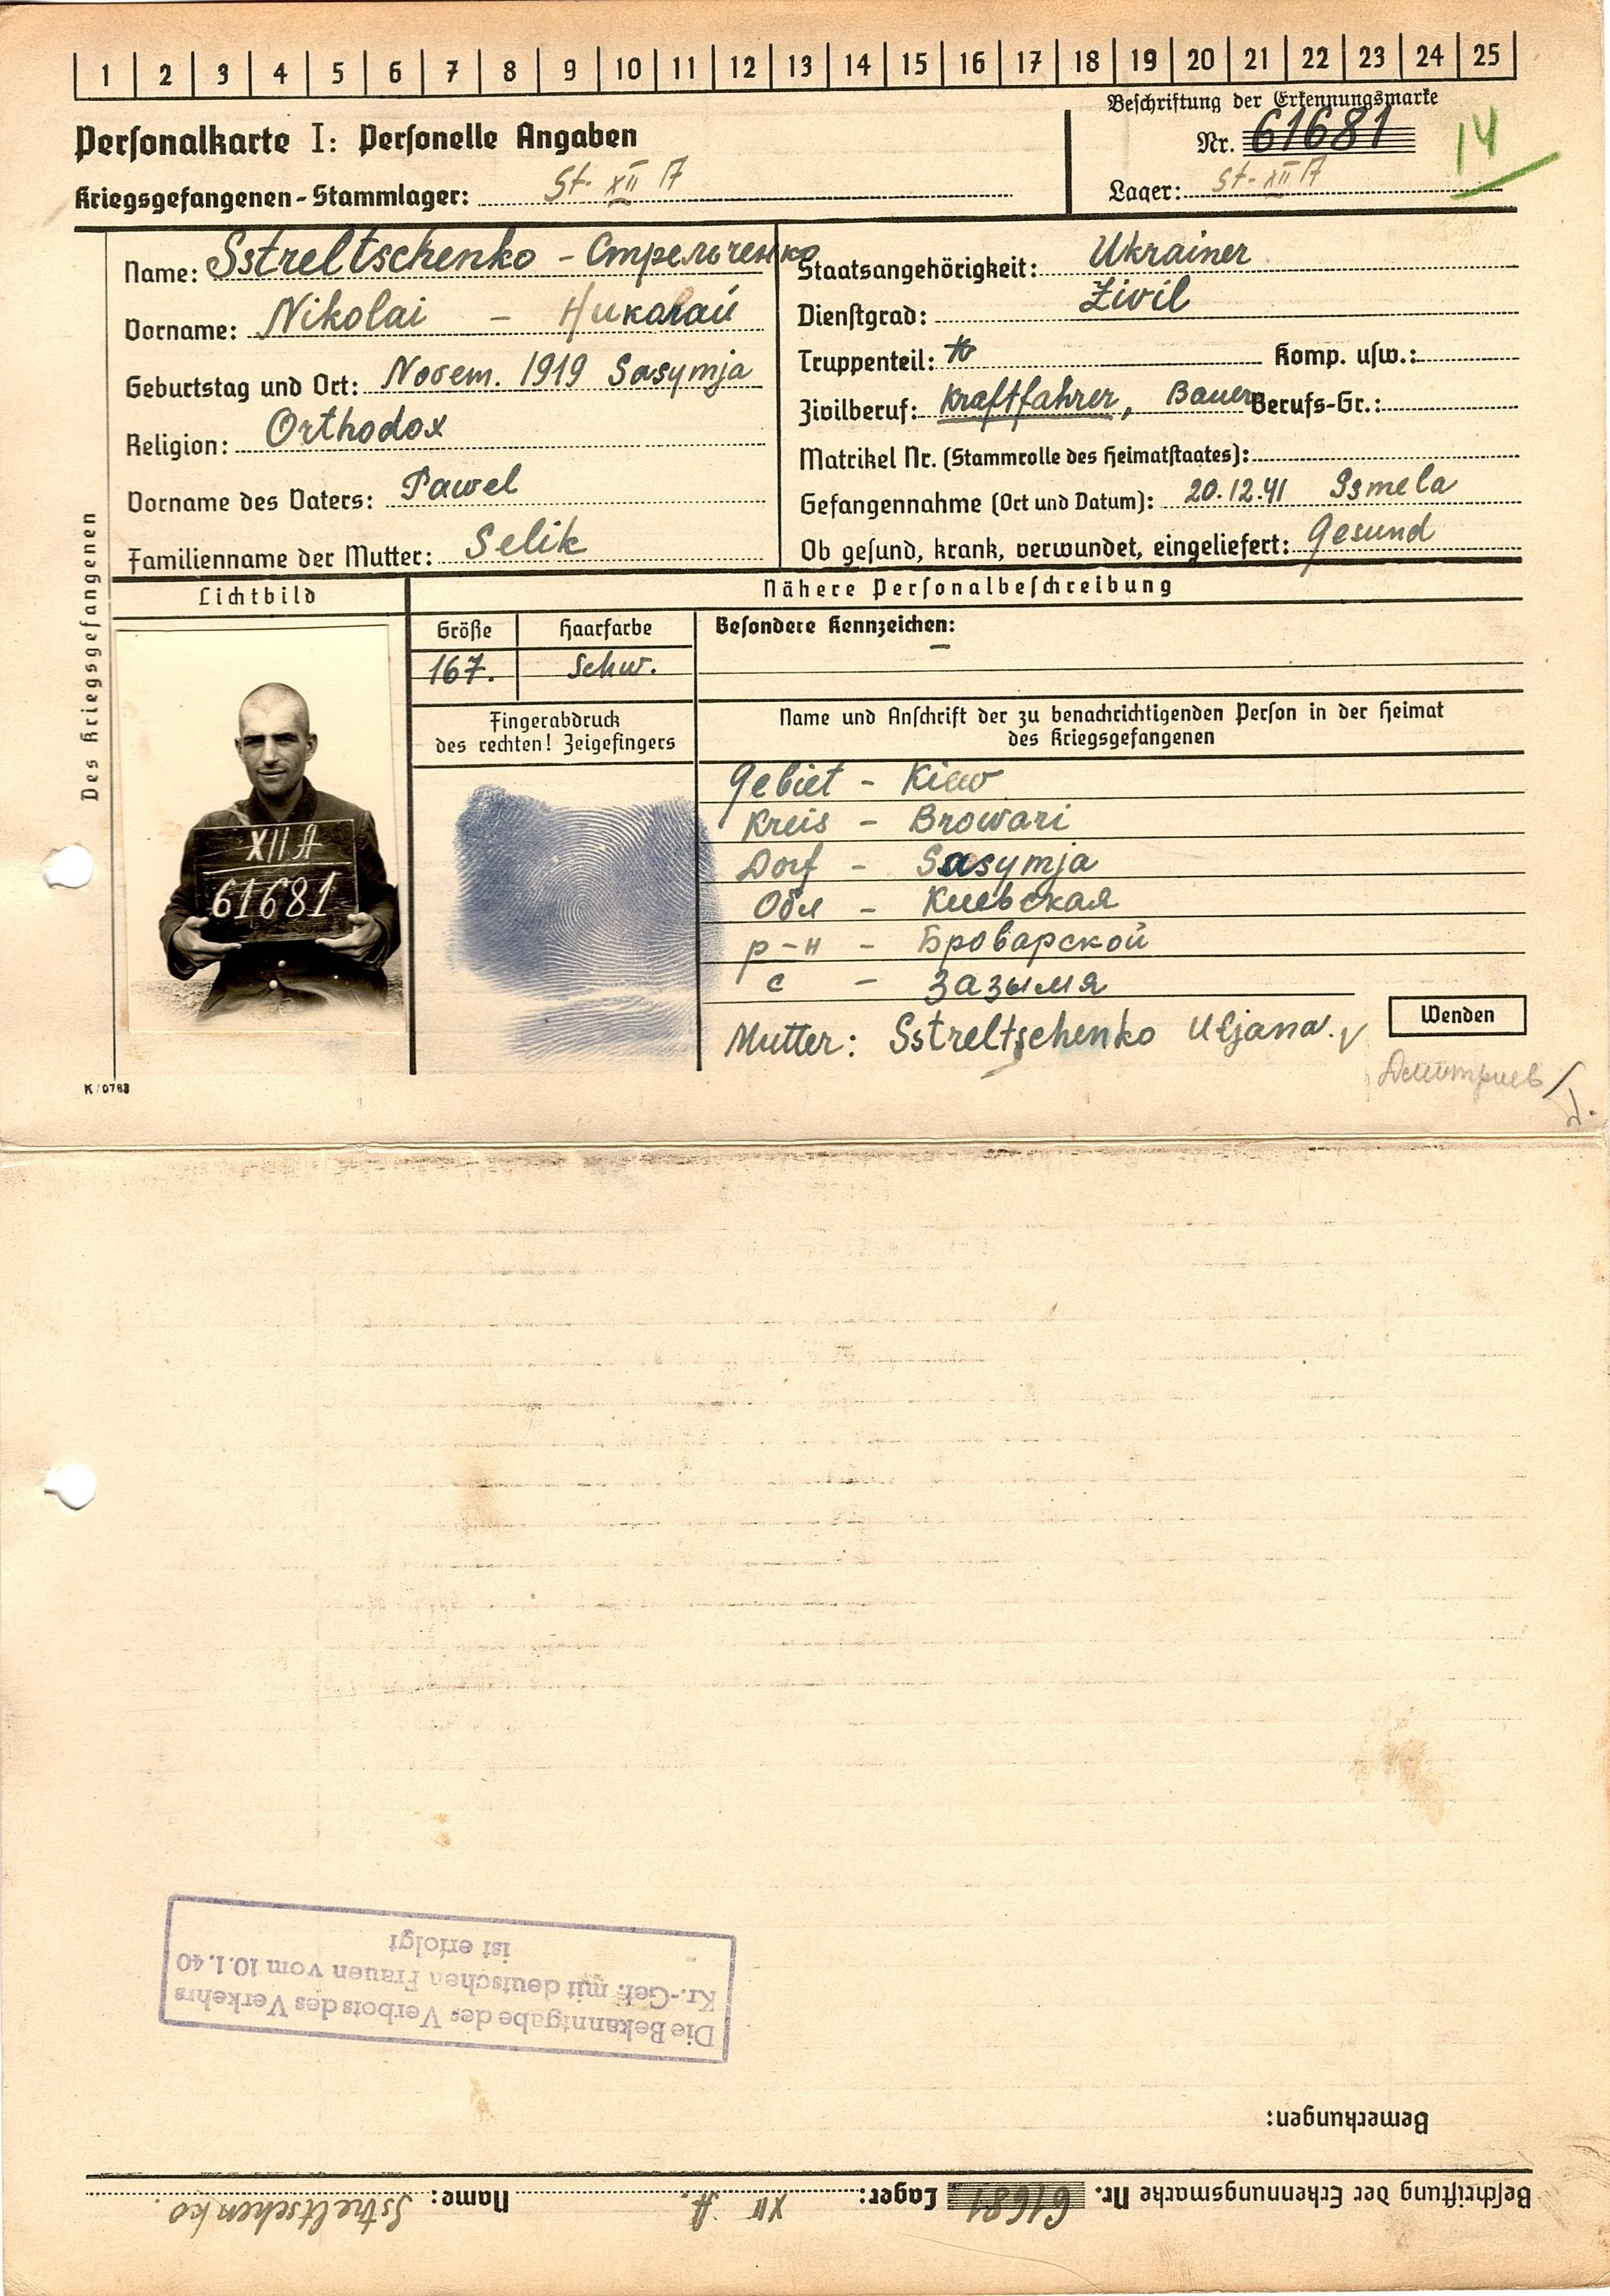 1 2 3 4 5 6 7 8 9 10 11 12 13 14 15 16 17 18 19 20 21 22 23 24 25
Beschriftung der Erkennungsmarke
Personalkarte I: Personelle Angaben
Nr. 61681
14
Kriegsgefangenen-Stammlager: St. XII A
Lager: St. XII A
Des Kriegsgefangenen
Name: Sstreltschenko - Стрельченко
Vorname: Nikolai - Николай
Geburtstag und Ort: Novem. 1919 Sasymja
Religion: Orthodox
Vorname des Vaters: Pawel
Familienname der Mutter: Selik
Staatsangehörigkeit: Ukrainer
Dienstgrad: Zivil
Truppenteil: Komp. usw.:
Zivilberuf: Kraftfahrer, Bauer Berufs-Gr.:
Matrikel Nr. (Stammrolle des Heimatstaates):
Gefangennahme (Ort und Datum): 20.12.41 Ssmela
Ob gesund, krank, verwundet, eingeliefert: Gesund
Lichtbild
Nähere Personalbeschreibung
Größe Haarfarbe
167. Schw.
Besondere Kennzeichen: –
Fingerabdruck
des rechten! Zeigefingers
Name und Anschrift der zu benachrichtigenden Person in der Heimat
des Kriegsgefangenen
XII A
61681
Gebiet - Kiew
Kreis - Browari
Dorf - Sasymja
Обл - Киевская
р-н - Броварской
с - Зазымя
Mutter: Sstreltschenko Uljana.
Wenden
K/0763
Дмитриев
Die Bekanntgabe des Verbots des Verkehrs
Kr.-Gef. mit deutschen Frauen vom 10.1.40
ist erfolgt
Bemerkungen:
Beschriftung der Erkennungsmarke Nr. 61681 Lager: XII A. Name: Sstreltschenko.